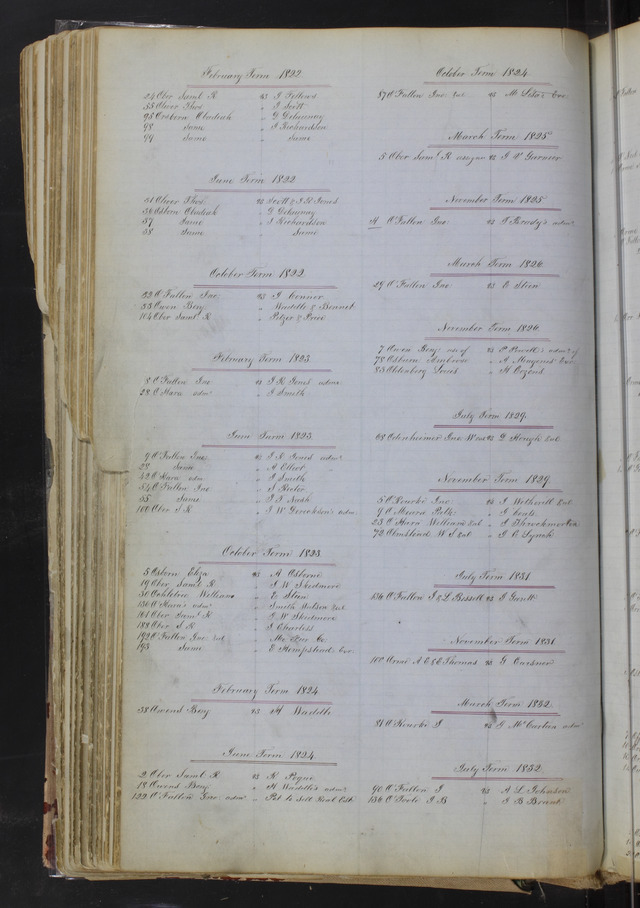 February Term 1822
24 Ober Saml R vs J Fellows
55 Oliver Thos " J Scott
95 Osborn Obadiah " G Delaunay
98 Same " J Richardson
99 Same " Same
June Term 1822
31 Oliver Thos vs Scott & J R Jones
36 Osborn Obadiah " G Delaunay
37 Same " J Richardson
38 Same " Same
October Term 1822
22 O'Fallon Jno vs J Connor
53 Owen Benj " Waddle & Bennet
104 Ober Saml R " Peltzer & Price
February Term 1823
8 O'Fallon Jno vs J R Jones admr
28 O'Hara admr " J Smith
June Term 1823
9 O'Fallon Jno vs J R Jones admr
28 Same " A Elliot
42 O'Hara adm " J Smith
54 O'Fallon Jno
55 Same " J P Nash
100 Ober S R " J W adm
October Term 1823
5 Osborn Eliza vs A Osborne
19 Ober Saml R " J W Skidmore
30 William " E Steen
136 O'Hara's admr " Smith Wilson Eal
161 Ober Saml R " J W Skidmore
188 Ober S R " J Charless
192 O'Fallon Jno Eal " Co
193 Same " E Hempstead Exr
February Term 1824
38 Owens Benj vs H Waddle
June Term 1824
2 Ober Saml R vs K Pogue
18 Owens Benj " H Waddle's admr
122 O'Fallon admr " Pet to sell Real Este
October Term 1824
87 O'Fallon Jno Eal vs M Lisa's Exr
March Term 1825
5 Ober Saml R assgnee vs J P
November Term 1825
4 O'Fallon Jno vs T Brady's admr
March Term 1826
29 O'Fallon Jno vs E Steen
November Term 1826
7 Owen Benj use of vs P Powell's admr of
78 Osborn Ambrose " A Exr
83 Oldenburg Louis " H
July Term 1829
68 Odenheimer Jno W vs D Hough Eal
November Term 1829
5 O'Rourke Jno vs J Wetherill Eal
9 O'Meara Patk " J
23 O'Hara William Eal " J Throckmorton
72 Olmstead W S Eal " J C Lynch
July Term 1831
136 O'Fallon J & L Bissell vs J Gurett
November Term 1831
100 Orme A E & E Thomas vs G Carsner
March Term 1832
81 O'Rourke J vs J McCartan adm
July Term 1832
90 O'Fallon J vs A L Johnson
136 O'Toole J B " J B Brant